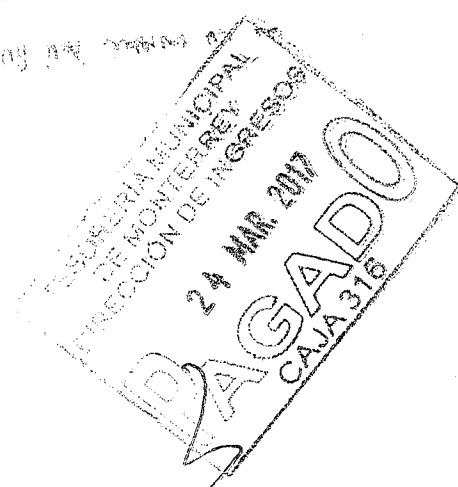 TESORERIA MUNICIPAL
DE MONTERREY
DIRECCIÓN DE INGRESOS
24 MAR. 2017
PAGADO
CAJA 316